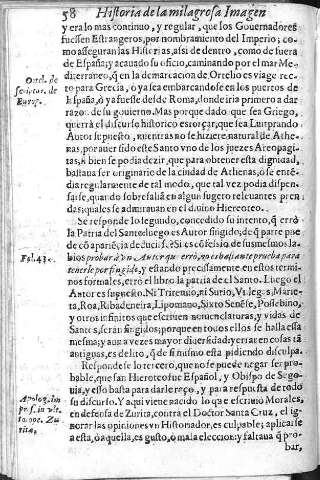 58 Historia de la milagrosa Imagen
y era lo mas continuo, y regular, que los Gouernadores
fuessen Estrangeros, por nombramiento del Imperio; co-
mo asseguran las Historias, assi de dentro, como de fuera
de España; y acauado su oficio, caminando por el mar Me-
diterraneo, q̃ en la demarcacion de Ortelio es viage rec-
to para Grecia, ò ya sea embarcandose en los puertos de
España, ò ya fuesse desde Roma, donde iria primero a dar
razon de su gouierno. Mas porque dado que sea Griego,
querrà el discurso historico esforçar, que sea Luitprando
Autor supuesto, mientras no se hiziere natural de Athe-
nas, por auer sido este Santo vno de los juezes Areopagi-
tas, ò bien se podia dezir, que para obtener esta dignidad,
bastaua ser originario de la ciudad de Athenas, ò se enté-
dia regularmente de tal modo, que tal vez podia dispen-
sarse, quando sobresalia en algun sugeto releuantes pren
das; quales se admirauan en el diuino Hieroteo.
Se responde lo segundo, concedido su intento, q̃ errò
la Patria del Santo: luego es Autor fingido; de q̃ parte pue
de cõ aparécia deducirse? Si es cõfessiõ de sus mesmos la-
bios probar à vn Autor que errò, no es bastante prueba para
tenerle por fingido, y estando precisamente en estos termi-
nos formales, errò el libro la patria del Santo. Luego el
Autor es supuesto. Ni Tritemio, ni Surio, Villegas, Marie-
ta, Roa, Ribadeneira, Lipomano, Sixto Senẽse, Posebino,
y otros infinitos que escriuen nomenclaturas, y vidas de
Santos, seràn fingidos; porque en todos ellos se halla essa
mesma; y aun a vezes mayor diuersidad; y errar en cosas tã
antiguas, es delito, q̃ de si mismo està pidiendo disculpa.
Responde se lo tercero, que no se puede negar ser pro-
bable, que san Hieroteo fue Español, y Obispo de Sego-
uia, y esso basta para darle rezo, y para respuesta de todo
su discurso. Y aqui viene nacido lo que escriuiò Morales,
en defensa de Zurita, contra el Doctor Santa Cruz, el ig-
norar las opiniones vn Historiador, es culpable; aplicarse
a esta, ò aquella, es gusto, ò mala eleccion: y faltaua q̃ pro-
bar,
Ortel. de
Europ.
Fol. 43.
Apolog. im
pres. in vlt.
tomo. Zu-
rita.